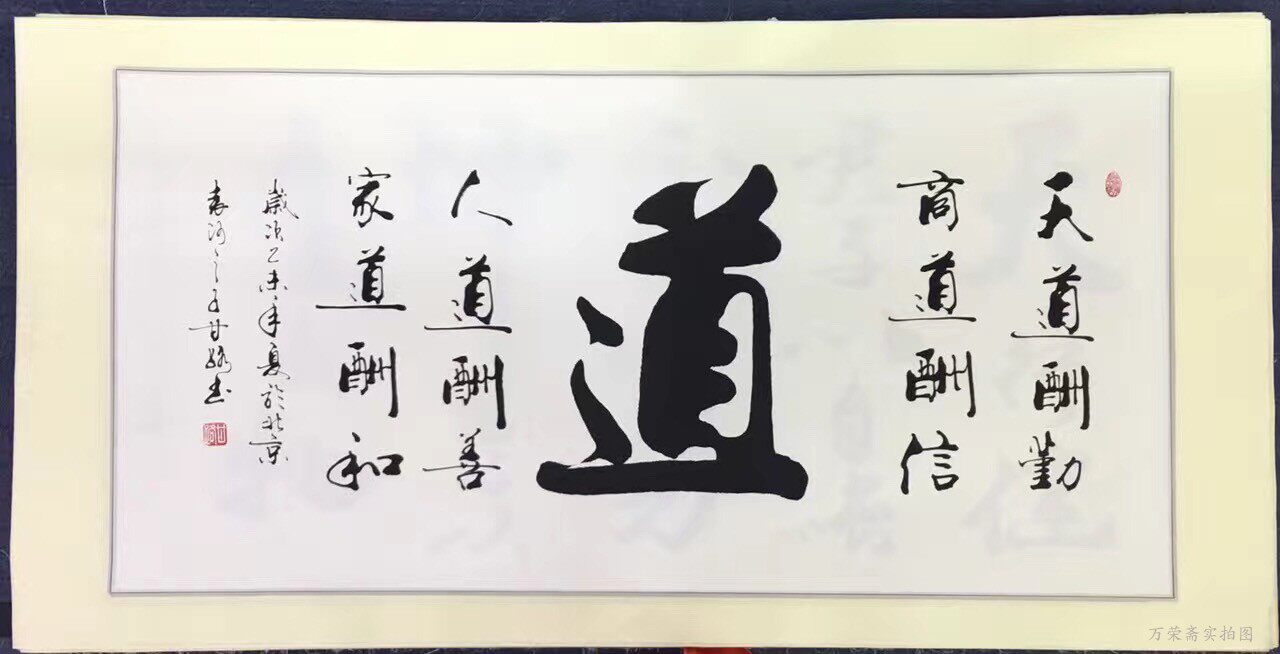 天道酬勤
商道酬信
道
人道酬善
家道酬和
歲次乙未年夏於北京
甘
书
万荣斋实拍图